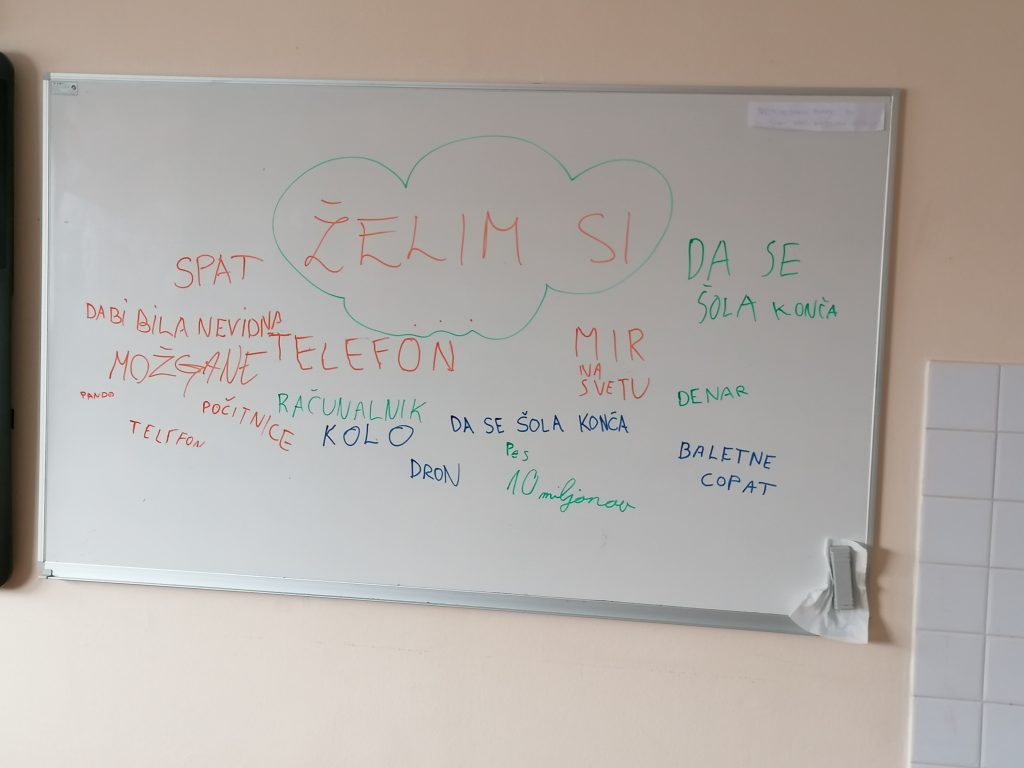 ŽELIM SI
...
SPAT
DA SE
ŠOLA KONČA
DA BI BILA NEVIDNA
TELEFON
MOŽGANE
MIR
NA
SVETU
PANDO
POČITNICE
RAČUNALNIK
DENAR
TELEFON
KOLO
DA SE ŠOLA KONČA
Pes
BALETNE
COPAT
DRON
10 miljonov